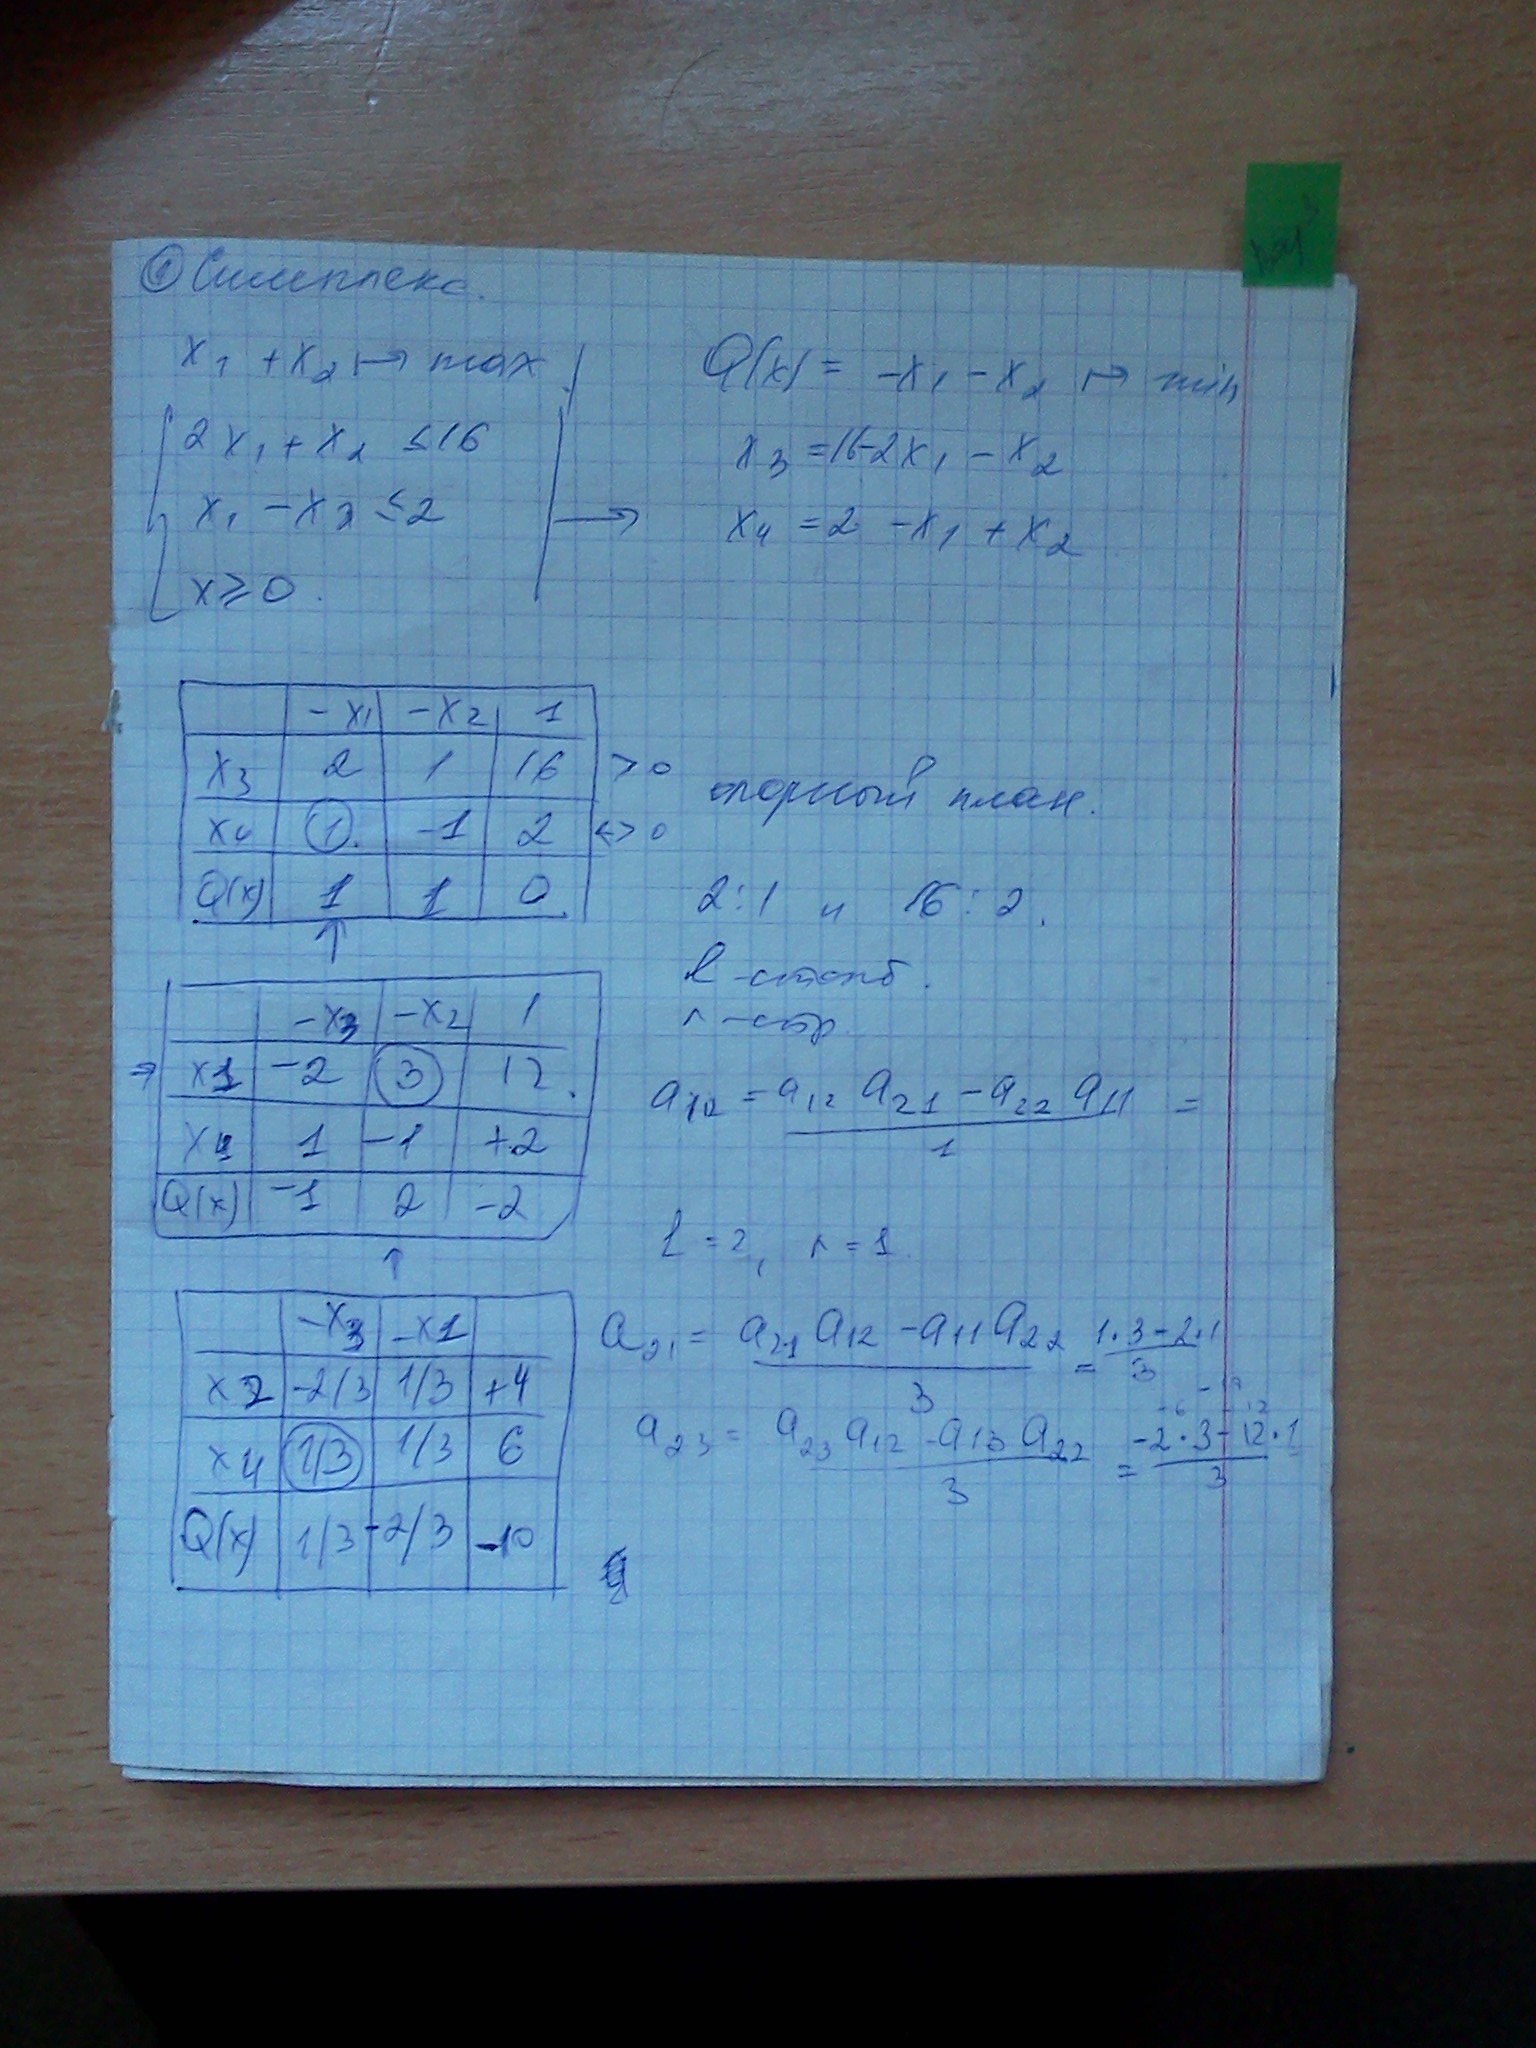 ① Симплекс.
x₁ + x₂ ↦ max
2x₁ + x₂ ≤ 16
x₁ - x₂ ≤ 2
x ≥ 0.
→
Q(x) = -x₁ - x₂ ↦ min
x₃ = 16-2x₁ - x₂
x₄ = 2 - x₁ + x₂
-x₁ -x₂ 1
x₃ 2 1 16 > 0
x₄ ① -1 2 <> 0
Q(x) 1 1 0
↑
опорный план.
2:1 и 16:2.
l - столб.
r - стр.
-x₃ -x₂ 1
→ x1 -2 ③ 12
x4 1 -1 +2
Q(x) -1 2 -2
↑
= a₁₂ a₂₁ - a₂₂ a₁₁ / 1 =
l = 2, r = 1.
-x3 -x1
x2 -2/3 1/3 +4
x4 1/3 1/3 6
Q(x) 1/3 -2/3 -10
a₂₁ = a₂₁ a₁₂ - a₁₁ a₂₂ / 3 = 1·3-2·1 / 3
a₂₃ = a₂₃ a₁₂ - a₁₃ a₂₂ / 3 = -2·3-12·1 / 3
-6 -12